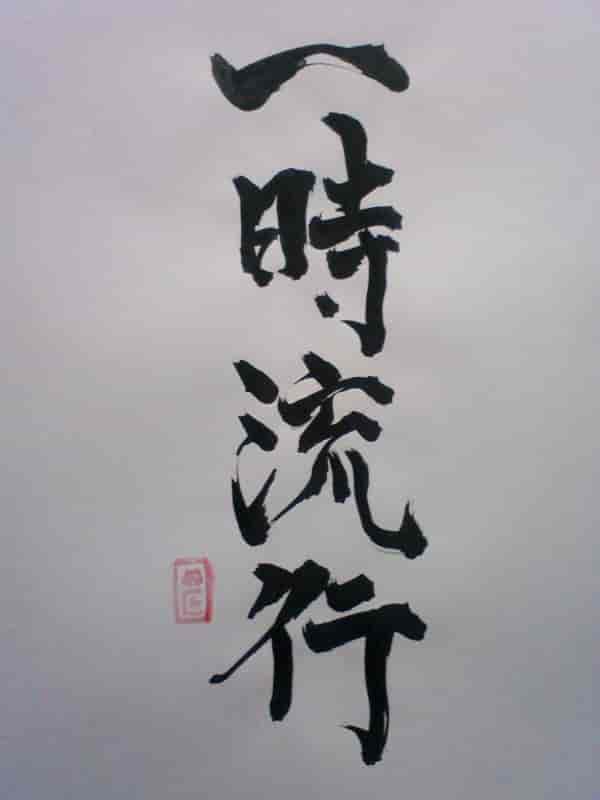 一時流行